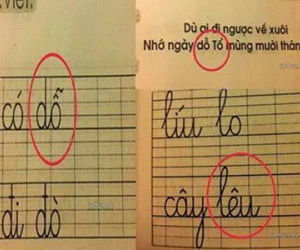 có đỗ
đi đò
Dù ai đi ngược về xuôi
Nhớ ngày dỗ Tổ mùng mười thán
líu lo
cây lêu